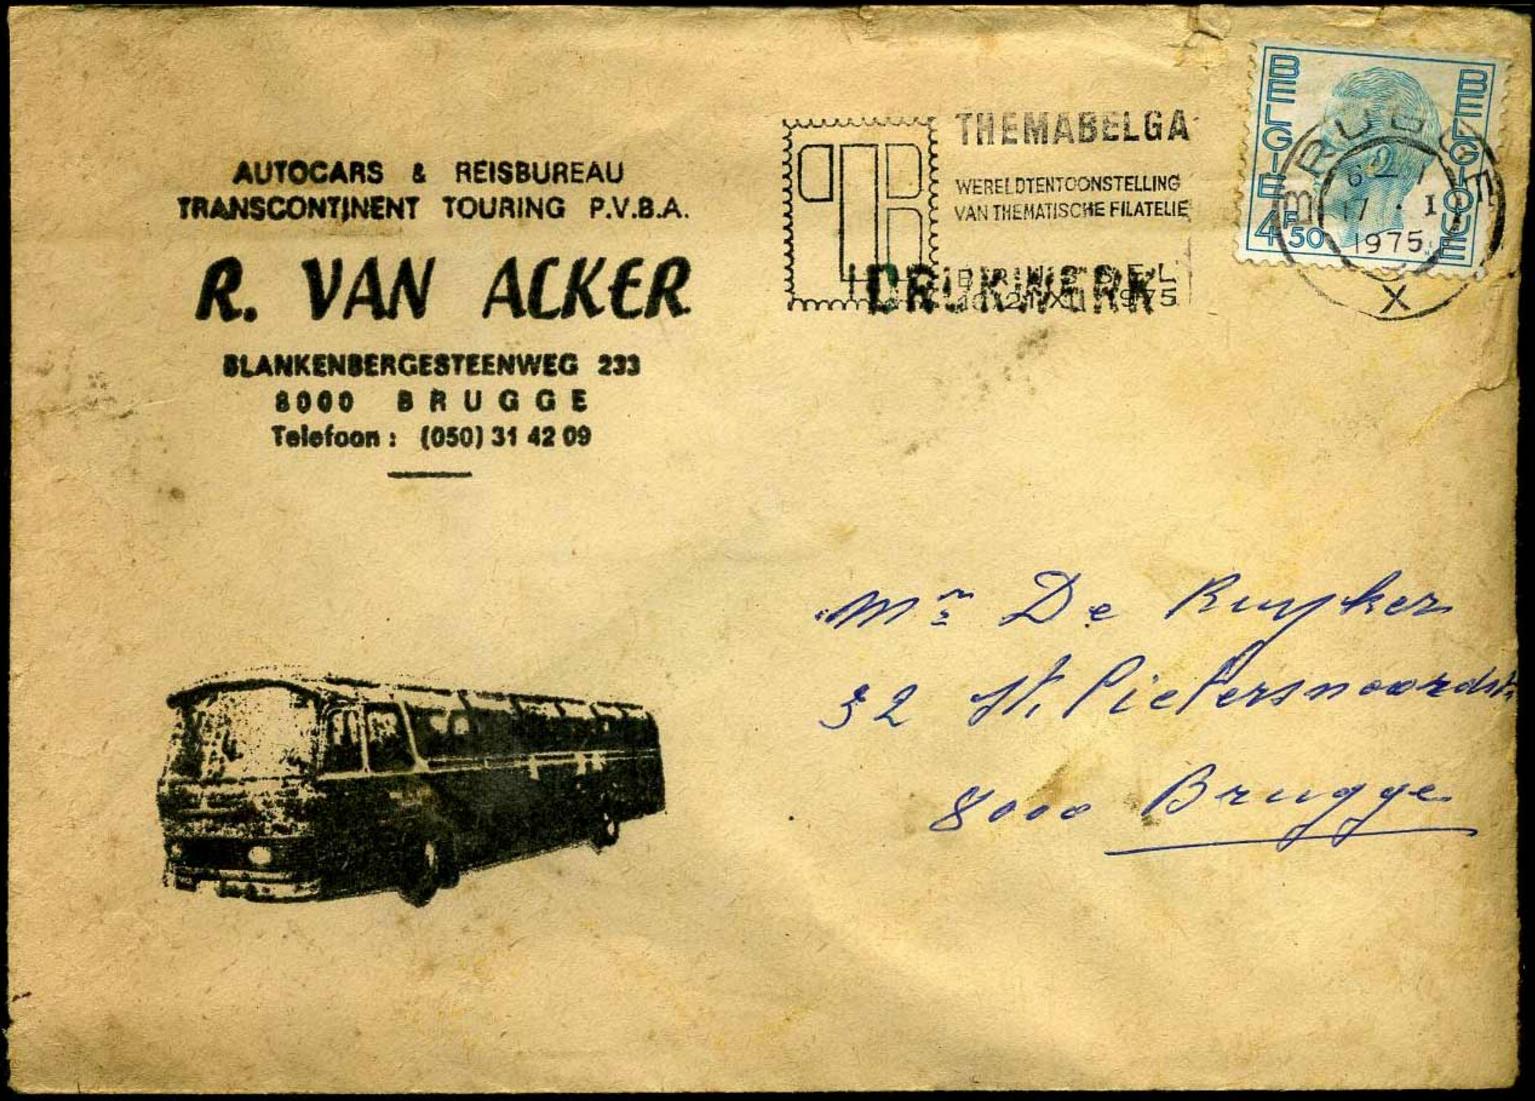 AUTOCARS & REISBUREAU
TRANSCONTINENT TOURING P.V.B.A.
R. VAN ACKER
BLANKENBERGESTEENWEG 233
8000 BRUGGE
Telefoon : (050) 31 42 09
THEMABELGA
WERELDTENTOONSTELLING
VAN THEMATISCHE FILATELIE
1975
DRUKWERK
BELGIE
BELGIQUE
4F50
BRUGGE
17 . I
1975
X
Mr De Ruyker
32 St. Pietersnoordstr
8000 Brugge